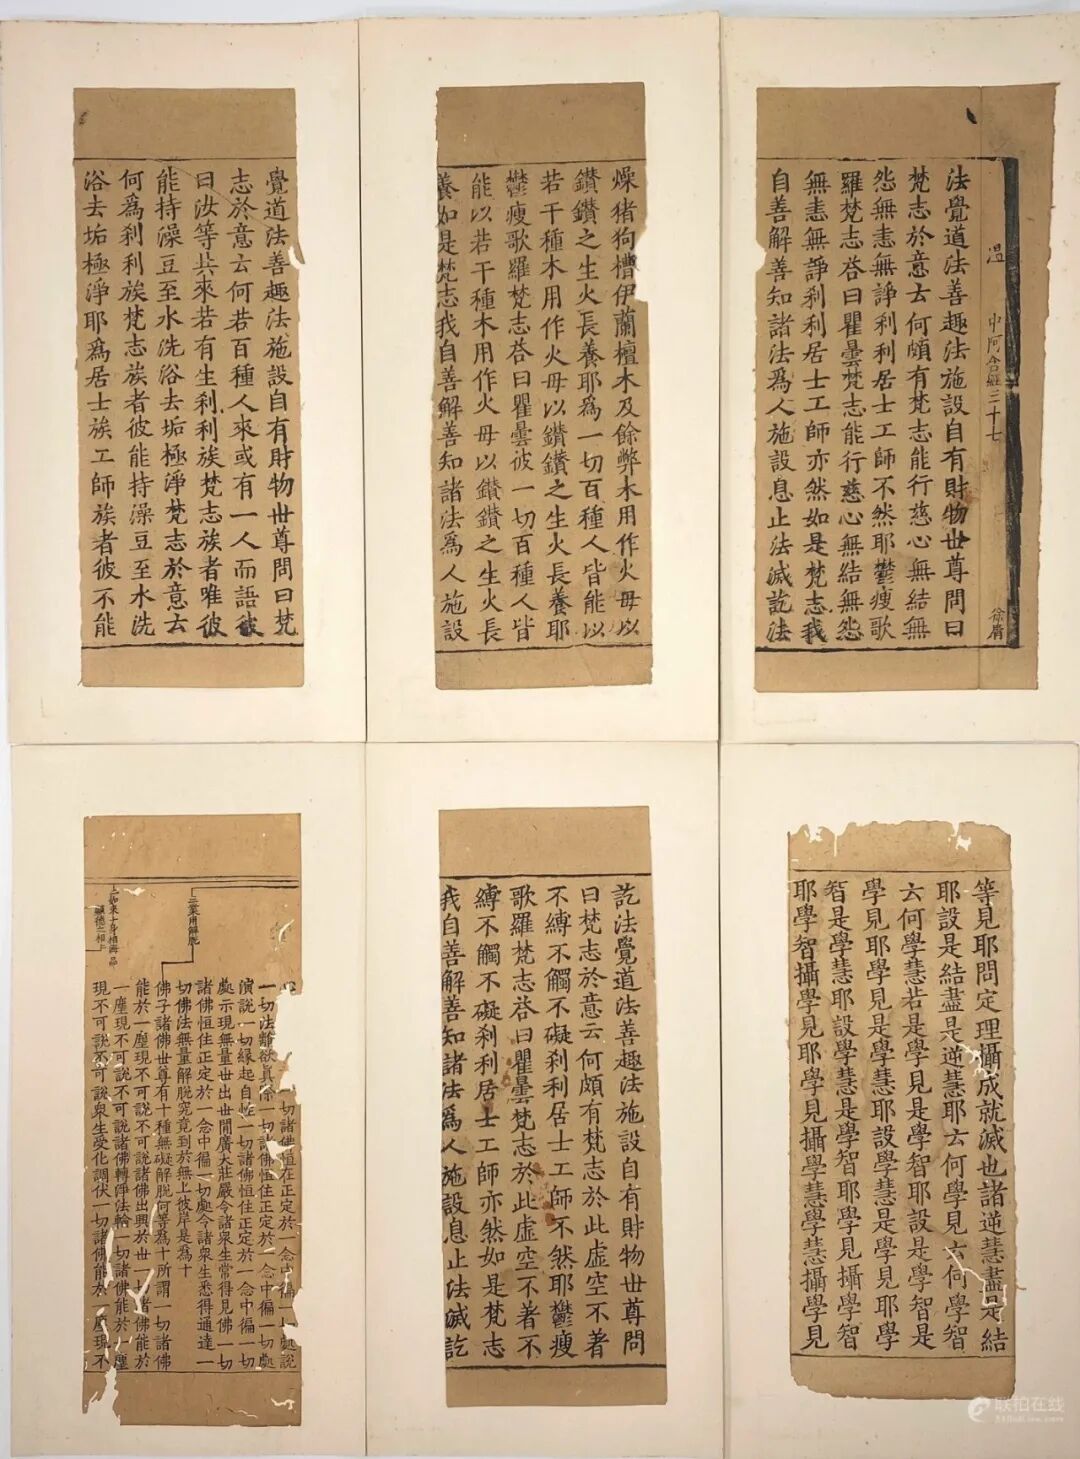 溫 中阿含經三十七 徐膺
法覺道法善趣法施設自有財物世尊問曰
梵志於意云何頗有梵志能行慈心無結無
怨無恚無諍剎利居士工師不然耶鬱瘦歌
羅梵志答曰瞿曇梵志能行慈心無結無怨
無恚無諍剎利居士工師亦然如是梵志我
自善解善知諸法爲人施設息止法滅訖法
燥猪狗槽伊蘭檀木及餘弊木用作火母以
鑚鑚之生火長養耶爲一切百種人皆能以
若干種木用作火母以鑚鑚之生火長養耶
鬱瘦歌羅梵志答曰瞿曇彼一切百種人皆
能以若干種木用作火母以鑚鑚之生火長
養如是梵志我自善解善知諸法爲人施設
覺道法善趣法施設自有財物世尊問曰梵
志於意云何若百種人來或有一人而語彼
曰汝等共來若有生剎利族梵志族者唯彼
能持澡豆至水洗浴去垢極淨梵志於意云
何爲剎利族梵志族者彼能持澡豆至水洗
浴去垢極淨耶爲居士族工師族者彼不能
等見耶問定理攝成就滅也諸逆慧盡是結
耶設是結盡是逆慧耶云何學見云何學智
云何學慧若是學見是學智耶設是學智是
學見耶學見是學慧耶設學慧是學見耶學
智是學慧耶設學慧是學智耶學見攝學智
耶學智攝學見耶學見攝學慧學慧攝學見
訖法覺道法善趣法施設自有財物世尊問
曰梵志於意云何頗有梵志於此虛空不著
不縛不觸不礙剎利居士工師不然耶鬱瘦
歌羅梵志答曰瞿曇梵志於此虛空不著不
縛不觸不礙剎利居士工師亦然如是梵志
我自善解善知諸法爲人施設息止法滅訖
三業用解脫
上如來十身相海品
顯德之相上
一切諸佛恒在正定於一念中徧一切處說
一切法離欲真際一切諸佛恒住正定於一念中徧一切處
演說一切緣起自性一切諸佛恒住正定於一念中徧一切
處示現無量世出世間廣大莊嚴令諸衆生常得見佛一切
諸佛恒住正定於一念中徧一切處令諸衆生悉得通達一
切佛法無量解脫究竟到於無上彼岸是爲十
佛子諸佛世尊有十種無礙解脫何等爲十所謂一切諸佛
能於一塵現不可說不可說諸佛出興於世一切諸佛能於
一塵現不可說不可說諸佛轉淨法輪一切諸佛能於一塵
現不可說不可說衆生受化調伏一切諸佛能於一塵現不
联拍在线